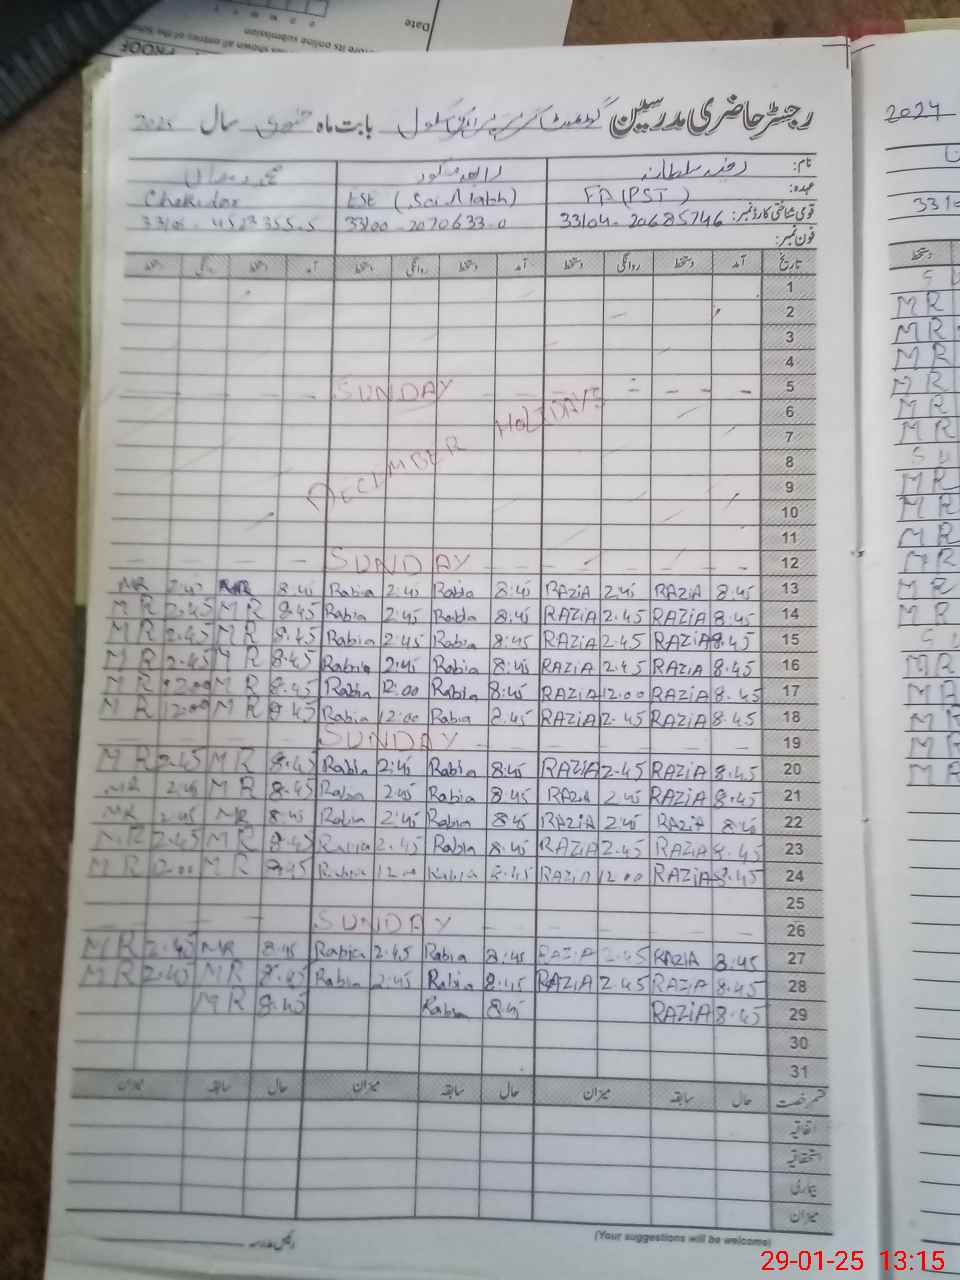 Date
رجسٹر حاضری مدرسین گورنمنٹ گرلز پرائمری سکول بابت ماہ جنوری سال 2025
نام: رضیہ سلطانہ
عہدہ: FA (PST) ESE (Sci Math) Chokidar
قومی شناختی کارڈ نمبر: 33104-20685746 33100-2070633-0
فون نمبر:
تاریخ آمد دستخط روانگی دستخط آمد دستخط روانگی دستخط آمد دستخط روانگی دستخط
1
2
3
4
5 SUNDAY
6
7 DECEMBER HOLIDAYS
8
9
10
11
12 SUNDAY
MR 2.45 MR 8.45 Rabia 2:45 Rabia 8:45 RAZiA 2.45 RAZiA 8.45 13
MR 2.45 MR 8.45 Rabia 2:45 Rabia 8:45 RAZiA 2.45 RAZiA 8.45 14
MR 2.45 MR 8.45 Rabia 2:45 Rabia 8:45 RAZiA 2.45 RAZiA 8.45 15
MR 2.45 MR 8.45 Rabia 2:45 Rabia 8:45 RAZiA 2.45 RAZiA 8.45 16
MR 12.00 MR 8.45 Rabia 12:00 Rabia 8:45 RAZiA 12.00 RAZiA 8.45 17
MR 12.00 MR 8.45 Rabia 12:00 Rabia 8.45 RAZiA 2.45 RAZiA 8.45 18
SUNDAY 19
MR 2.45 MR 8.45 Rabia 2:45 Rabia 8:45 RAZiA 2.45 RAZiA 8.45 20
MR 2.45 MR 8.45 Rabia 2:45 Rabia 8:45 RAZiA 2.45 RAZiA 8.45 21
MR 2.45 MR 8.45 Rabia 2:45 Rabia 8:45 RAZiA 2.45 RAZiA 8.45 22
MR 2.45 MR 8.45 Rabia 2.45 Rabia 8.45 RAZiA 2.45 RAZiA 8.45 23
MR 12.00 MR 8.45 Rabia 12.00 Rabia 8.45 RAZiA 12.00 RAZiA 8.45 24
25
SUNDAY 26
MR 2.45 MR 8.45 Rabia 2.45 Rabia 8:45 RAZiA 2.45 RAZiA 8.45 27
MR 2.45 MR 8.45 Rabia 2:45 Rabia 8.45 RAZiA 2.45 RAZiA 8.45 28
MR 8.45 Rabia 8.45 RAZiA 8.45 29
30
31
قسم رخصت حال سابقہ میزان حال سابقہ میزان حال سابقہ میزان
اتفاقیہ
استحقاقیہ
بیماری
میزان
(Your suggestions will be welcome)
2024
29-01-25 13:15